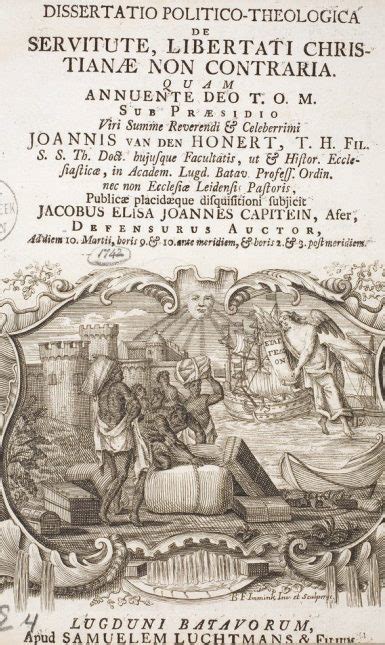 DISSERTATIO POLITICO-THEOLOGICA
DE
SERVITUTE, LIBERTATI CHRIS-
TIANÆ NON CONTRARIA.
QUAM
ANNUENTE DEO T. O. M.
SUB PRÆSIDIO
Viri Summe Reverendi & Celeberrimi
JOANNIS VAN DEN HONERT, T. H. FIL.
S. S. Th. Doct. hujusque Facultatis, ut & Histor. Eccle-
siasticæ, in Academ. Lugd. Batav. Profess. Ordin.
nec non Ecclesiæ Leidensis Pastoris,
Publicæ placidæque disquisitioni subjicit
JACOBUS ELISA JOANNES CAPITEIN, Afer,
DEFENSURUS AUCTOR,
Ad diem 10. Martii, horis 9. & 10. ante meridiem, & horis 2. & 3. post meridiem.
1742
B F Immink Inv. et Sculpergit.
4
LUGDUNI BATAVORUM,
Apud SAMUELEM LUCHTMANS & FILIUM